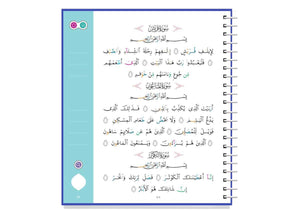 سُورَةُ قُرَيْشٍ
بِسْمِ اللَّهِ الرَّحْمَٰنِ الرَّحِيمِ
لِإِيلَٰفِ قُرَيْشٍ ۝ إِۦلَٰفِهِمْ رِحْلَةَ الشِّتَاءِ وَالصَّيْفِ
۝ فَلْيَعْبُدُوا رَبَّ هَٰذَا الْبَيْتِ ۝ الَّذِي أَطْعَمَهُم
مِّن جُوعٍ وَءَامَنَهُم مِّنْ خَوْفٍ ۝
سُورَةُ الْمَاعُونِ
بِسْمِ اللَّهِ الرَّحْمَٰنِ الرَّحِيمِ
أَرَءَيْتَ الَّذِي يُكَذِّبُ بِالدِّينِ ۝ فَذَٰلِكَ الَّذِي
يَدُعُّ الْيَتِيمَ ۝ وَلَا يَحُضُّ عَلَىٰ طَعَامِ الْمِسْكِينِ ۝
فَوَيْلٌ لِّلْمُصَلِّينَ ۝ الَّذِينَ هُمْ عَن صَلَاتِهِمْ سَاهُونَ
۝ الَّذِينَ هُمْ يُرَاءُونَ ۝ وَيَمْنَعُونَ الْمَاعُونَ ۝
سُورَةُ الْكَوْثَرِ
بِسْمِ اللَّهِ الرَّحْمَٰنِ الرَّحِيمِ
إِنَّا أَعْطَيْنَٰكَ الْكَوْثَرَ ۝ فَصَلِّ لِرَبِّكَ وَانْحَرْ ۝
إِنَّ شَانِئَكَ هُوَ الْأَبْتَرُ ۝